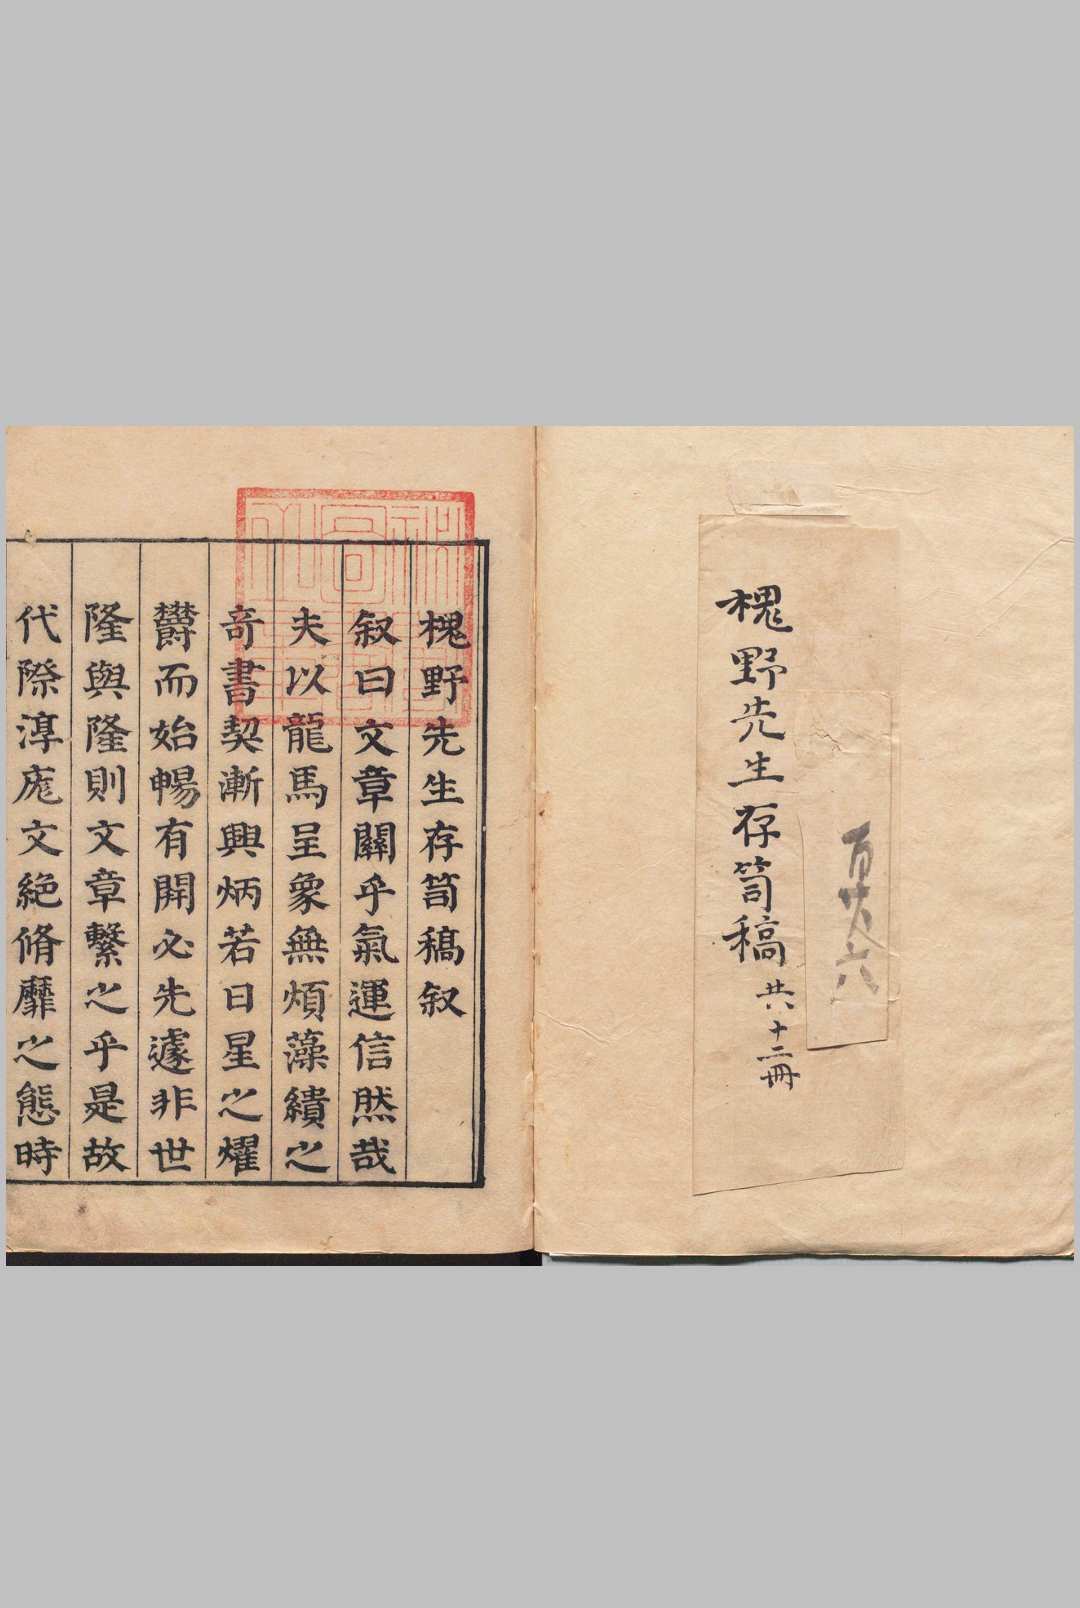 槐野先生存笥稿 共十二冊
槐野先生存笥稿叙
叙曰文章關乎氣運信然哉
夫以龍馬呈象無煩藻繢之
奇書契漸興炳若日星之燿
欝而始暢有開必先遽非世
隆與隆則文章繫之乎是故
代際淳庬文絶脩靡之態時